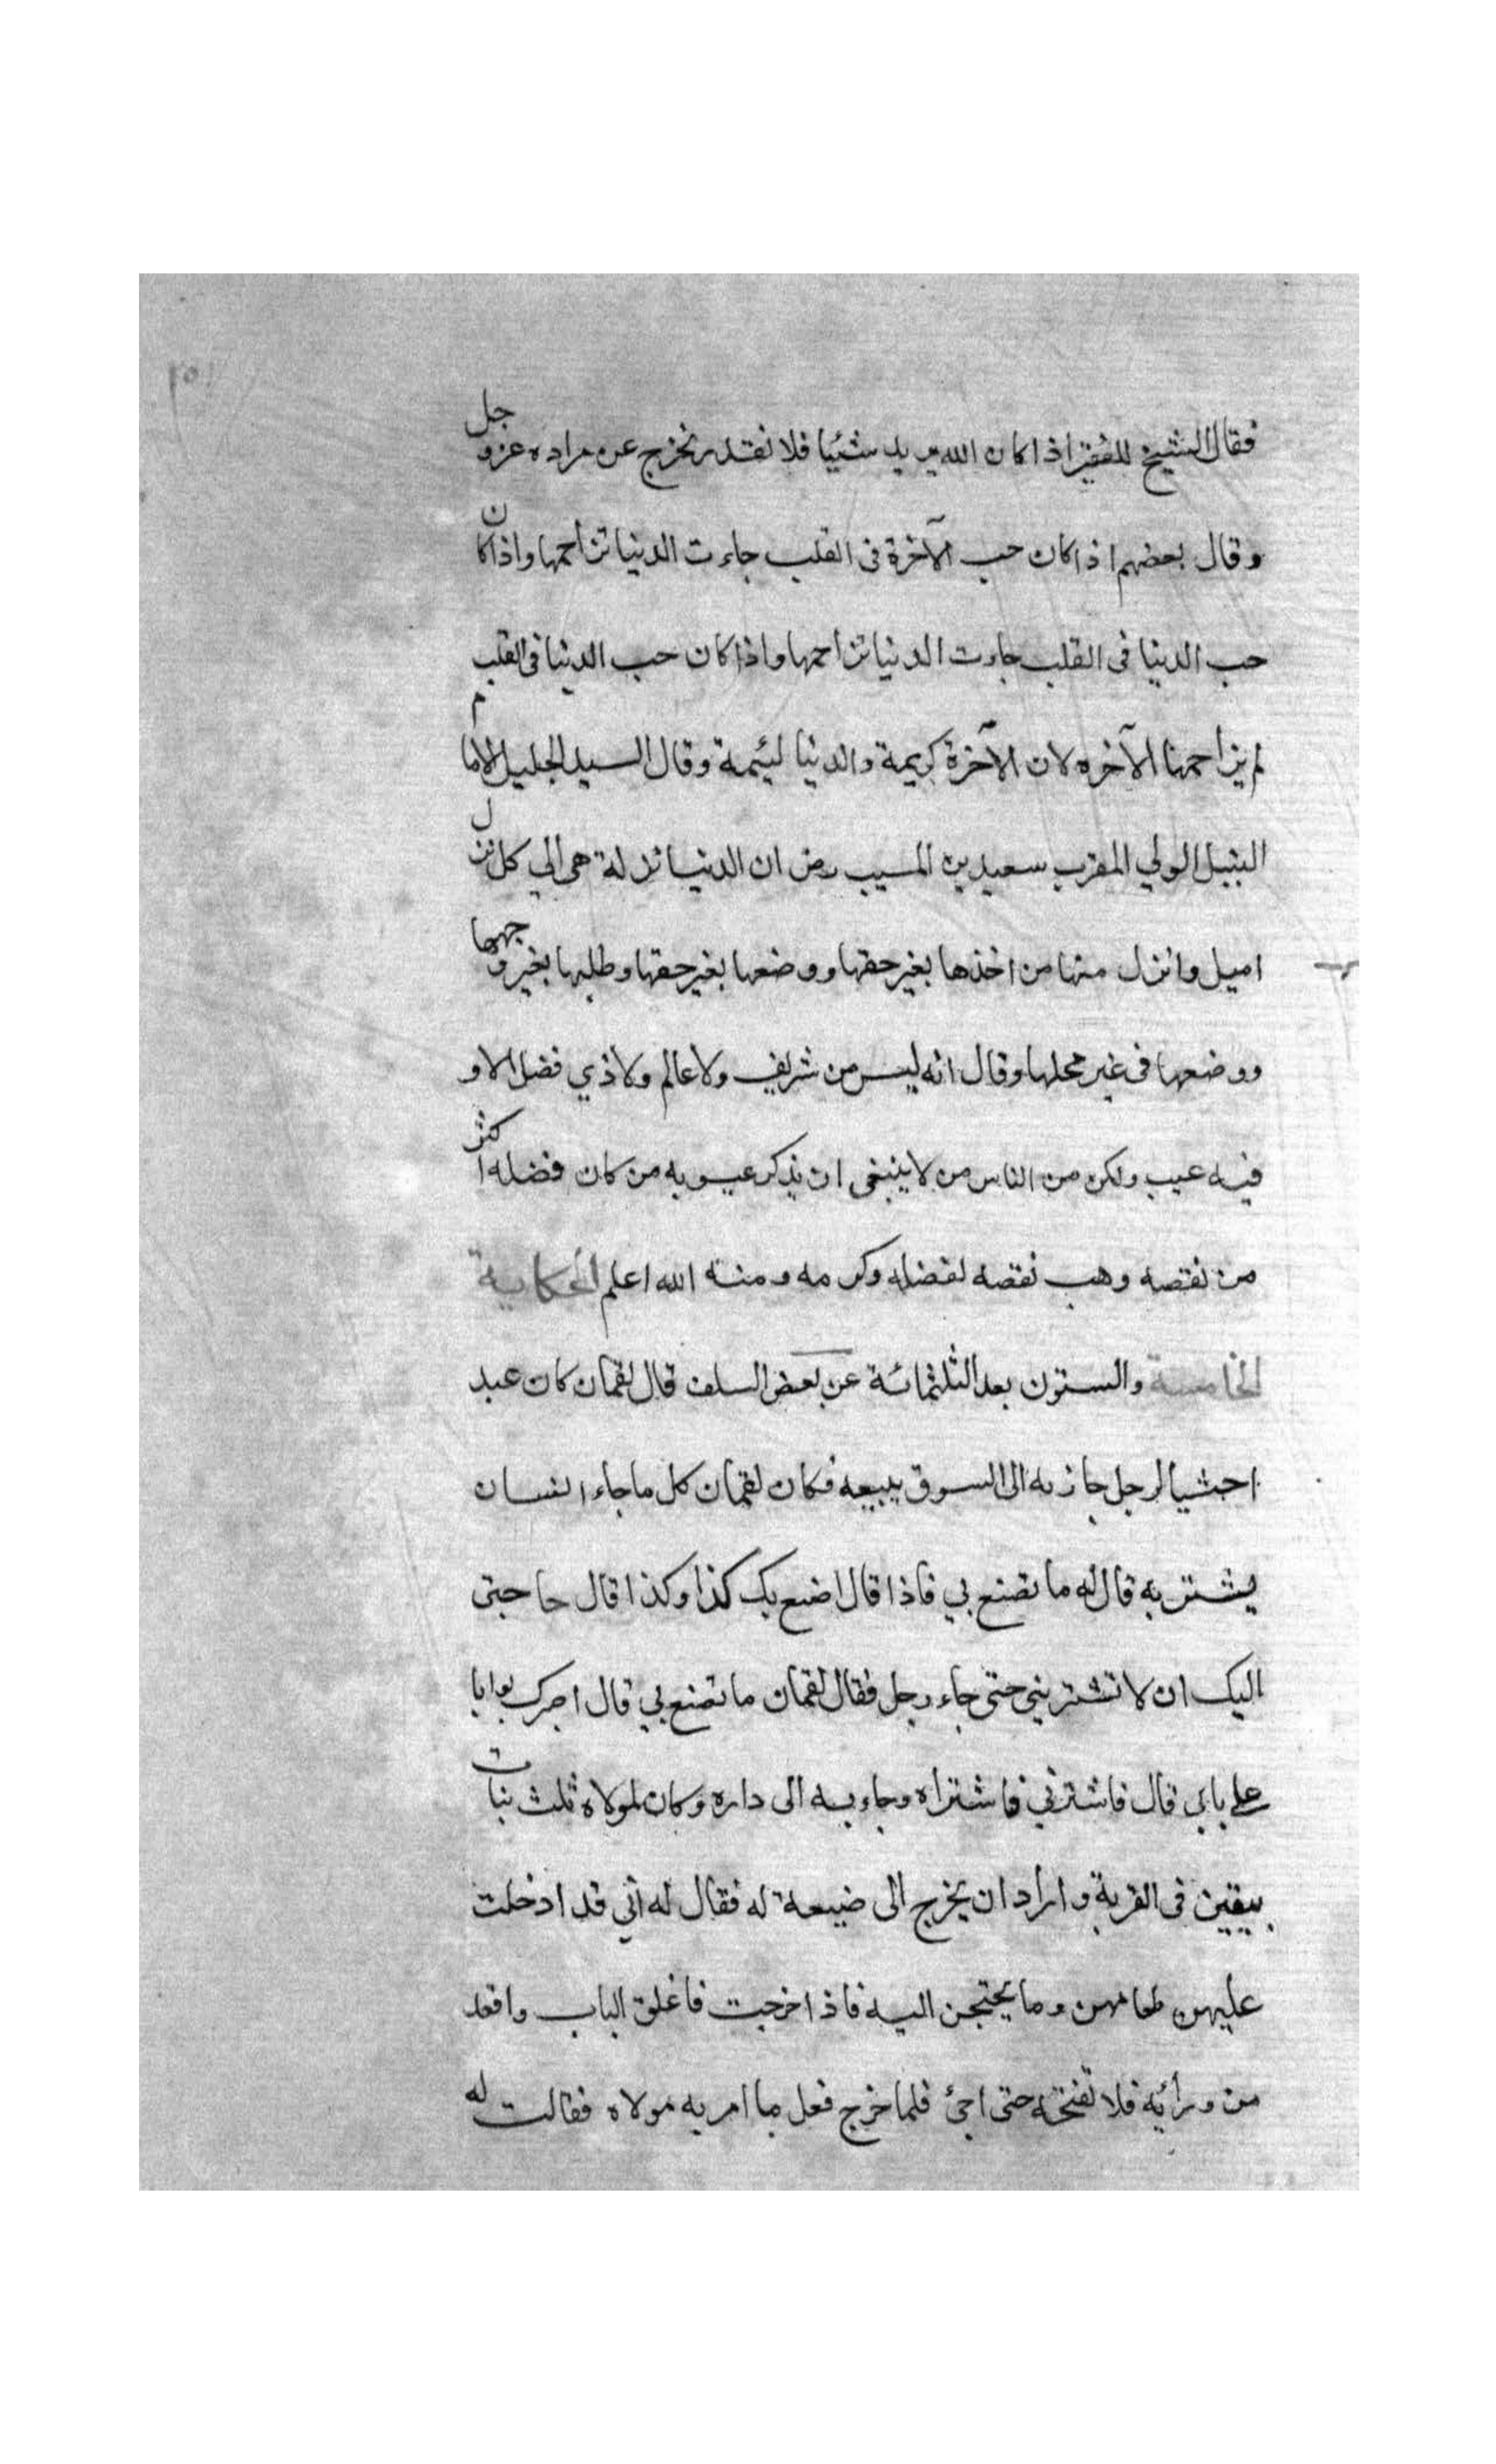 فقال الشيخ للفقير اذا كان الله يريد شئيا فلا نقدر نخرج عن مراده عز وجل
وقال بعضهم اذا كان حب الآخرة فى القلب جاءت الدنيا تزاحمها واذا كان
حب الدنيا فى القلب جاءت الدنيا تزاحمها واذا كان حب الدنيا فى القلب
لم يزاحمها الآخره لان الآخرة كريمة والدنيا لئيمة وقال السيد الجليل الامام
النبيل الولي المقرب سعيد بن المسيب رض ان الدنيا نذلة هى الي كل نذل
اميل وانزل منها من اخذها بغير حقها ووضعها بغير حقها وطلبها بغير وجهها
ووضعها فى غير محلها وقال انه ليس من شريف ولا عالم ولا ذي فضل الا و
فيه عيب ولكن من الناس من لا ينبغى ان يذكر عيوبه من كان فضله اكثر
من نقصه وهب نقصه لفضله وكرمه ومنه الله اعلم الحكاية
الخامسة والستون بعد الثلثمائة عن بعض السلف قال لقمان كان عبد
احبشيا لرجل جاز به الى السوق يبيعه فكان لقمان كل ما جاء انسان
يشتريه قال له ما تصنع بي فاذا قال اصنع بك كذا وكذا قال حاجتى
اليك ان لا تشتريني حتى جاء رجل فقال لقمان ما تصنع بي قال اصيرك بوابا
على بابى قال فاشترني فاشتراه وجاء به الى داره وكان لمولاه ثلث بنات
يبقين فى القرية واراد ان يخرج الى ضيعة له فقال له اني قد ادخلت
عليهن طعامهن وما يحتجن اليه فاذا خرجت فاغلق الباب واقعد
من ورائه فلا تفتحه حتى اجئ فلما خرج فعل ما امر به مولاه فقالت له